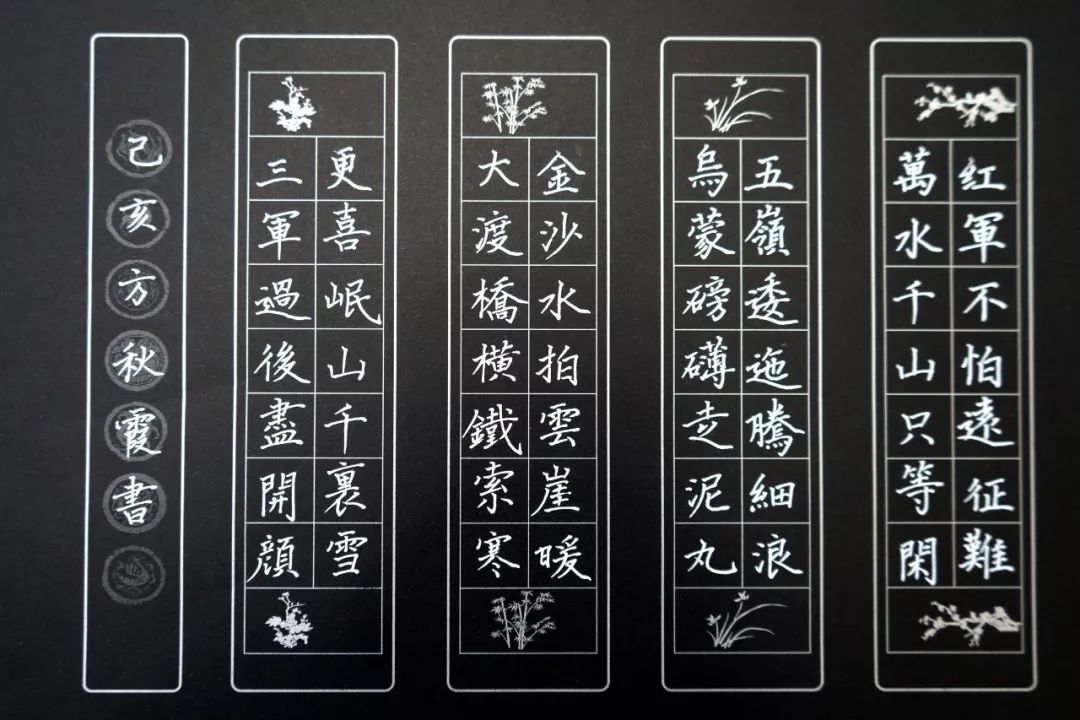 红軍不怕遠征難
萬水千山只等閑
五嶺逶迤騰細浪
烏蒙磅礴走泥丸
金沙水拍雲崖暖
大渡橋橫鐵索寒
更喜岷山千裏雪
三軍過後盡開顔
己亥方秋霞書